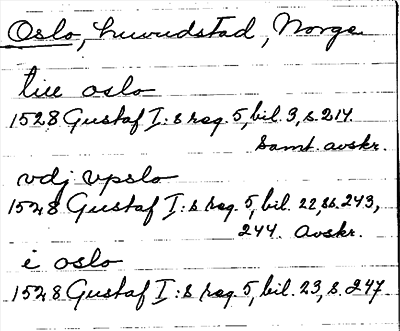 Oslo, huvudstad, Norge
tiil oslo
1528 Gustaf I:s reg. 5, bil. 9, s. 214.
Samt. avskr.
vdj vpslo
1528 Gustaf I:s reg. 5, bil. 22, ss. 243,
244. Avskr.
i oslo
1528 Gustaf I:s reg. 5, bil. 23, s. 247